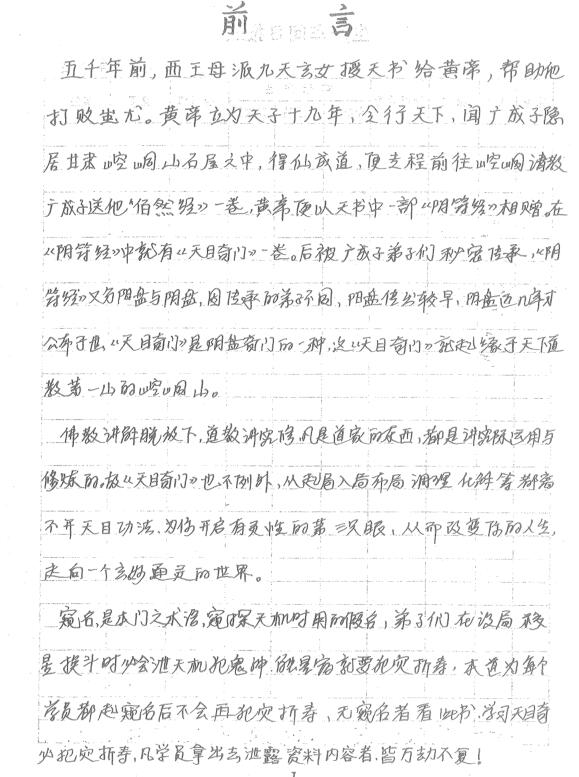 前言
五千年前，西王母派九天玄女授天书给黄帝，帮助他
打败蚩尤。黄帝立为天子十九年，令行天下，闻广成子隐
居甘肃崆峒山石屋之中，得仙成道，便专程前往崆峒请教
广成子送他“佰然经》一卷，黄帝便以天书中一部《阴符经》相赠。在
《阴符经》中就有《天目奇门》一卷。后被广成子弟子们秘密传承，《阴
符经》又分阳盘与阴盘，因传承的弟子不同，阳盘传出较早，阴盘近几年才
公布于世，《天目奇门》是阴盘奇门的一种，这《天目奇门》就起缘于天下道
教第一山的崆峒山。
佛教讲解脱放下，道教讲究修，凡是道家的东西，都是讲实际运用与
修炼的。故《天目奇门》也不例外，从起局入局布局调理化解等都离
不开天目功法，为你开启有灵性的第三只眼，从而改变你的人生，
走向一个玄妙通灵的世界。
窥名，是本门之术语，窥探天机时用的假名，弟子们在设局移
星换斗时必会泄天机犯鬼神，就要犯灾折寿，本道为每个
学员都起窥名后不会再犯灾折寿，无窥名者看此书，学习天目奇
必犯灾折寿，凡学员拿出去泄露资料内容者，皆万劫不复！
I